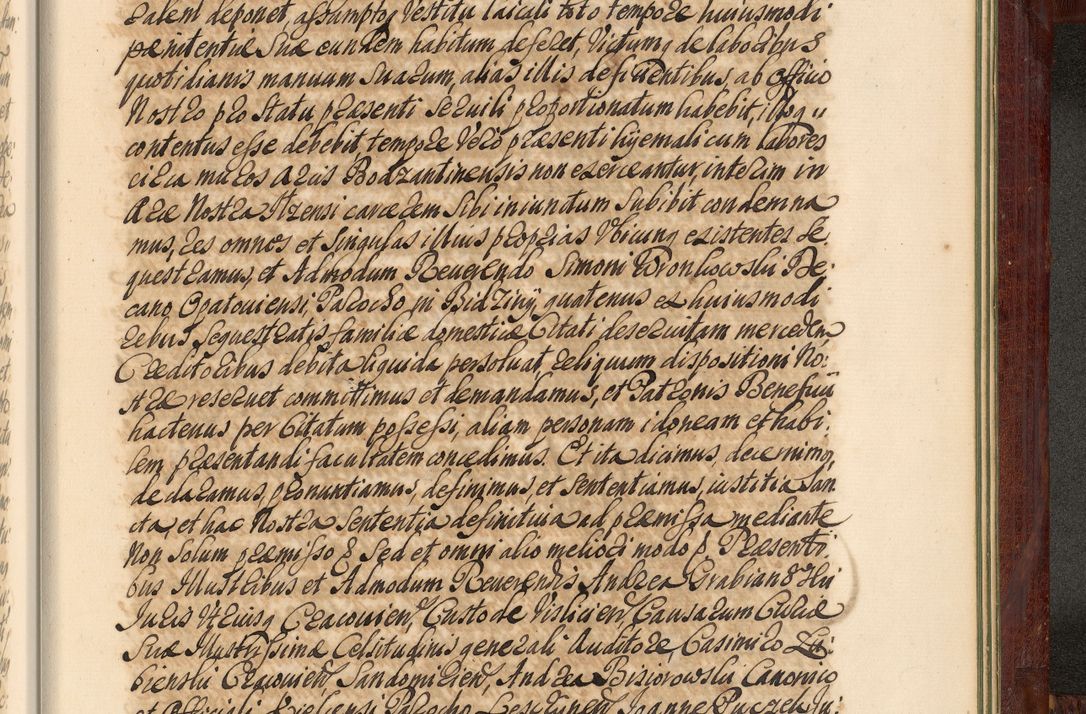 calem deponet, assumptoq vestitu laicali toto tempore huiusmodi
pænitentiæ suæ eundem habitum deferet, victumq de laboribus
quotidianis manuum suarum, alias illis deficientibus ab officio
Nostro pro statu præsenti servili proportionatum habebit, illoq
contentus esse debebit, tempore vero præsenti hyemali cum labores
circa muros Arcis Bodzantinensis non exerceantur, interim in
Arce Nostra Ilzensi carcerem sibi iniunctum subibit condemna
mus, res omnes et singulas illius proprias ubicunq existentes se
questramus, et Admodum Reverendo Simoni Wronkowski De:
cano Opatoviensi, Parocho in Bidziny, quatenus ex huiusmodi
rebus sequestratis familiæ domesticæ Citati deservitam mercedem
Creditoribus debita liquida persolvat, reliquum dispositioni No:
stræ reservet committimus et demandamus, et Patronis Beneficii
hactenus per Citatum possessi, aliam personam idoneam et habi:
lem præsentandi facultatem concedimus. Et ita dicimus, decernimo,
declaramus, pronuntiamus, definimus, et sententiamus, iustitia san
cta, et hac Nostra sententia definitiva ad præmissa mediante
Non solum præmisso Sed et omni alio meliori modo p. Præsenti
bus Illustribus et Admodum Reverendis Andrea Grabianoski
Iuris Utriusq Cracovien, Custode Vislicien, Causarum Curiæ
Suæ Illustrissimæ Celsitudinis generali Auditore, Casimiro Lu:
bienski Cracovien Sandomirien, Andrea Bisiorowski Canonico
et Officiali Kielcensi Parocho Leszczynen Joanne Puczek Ju: